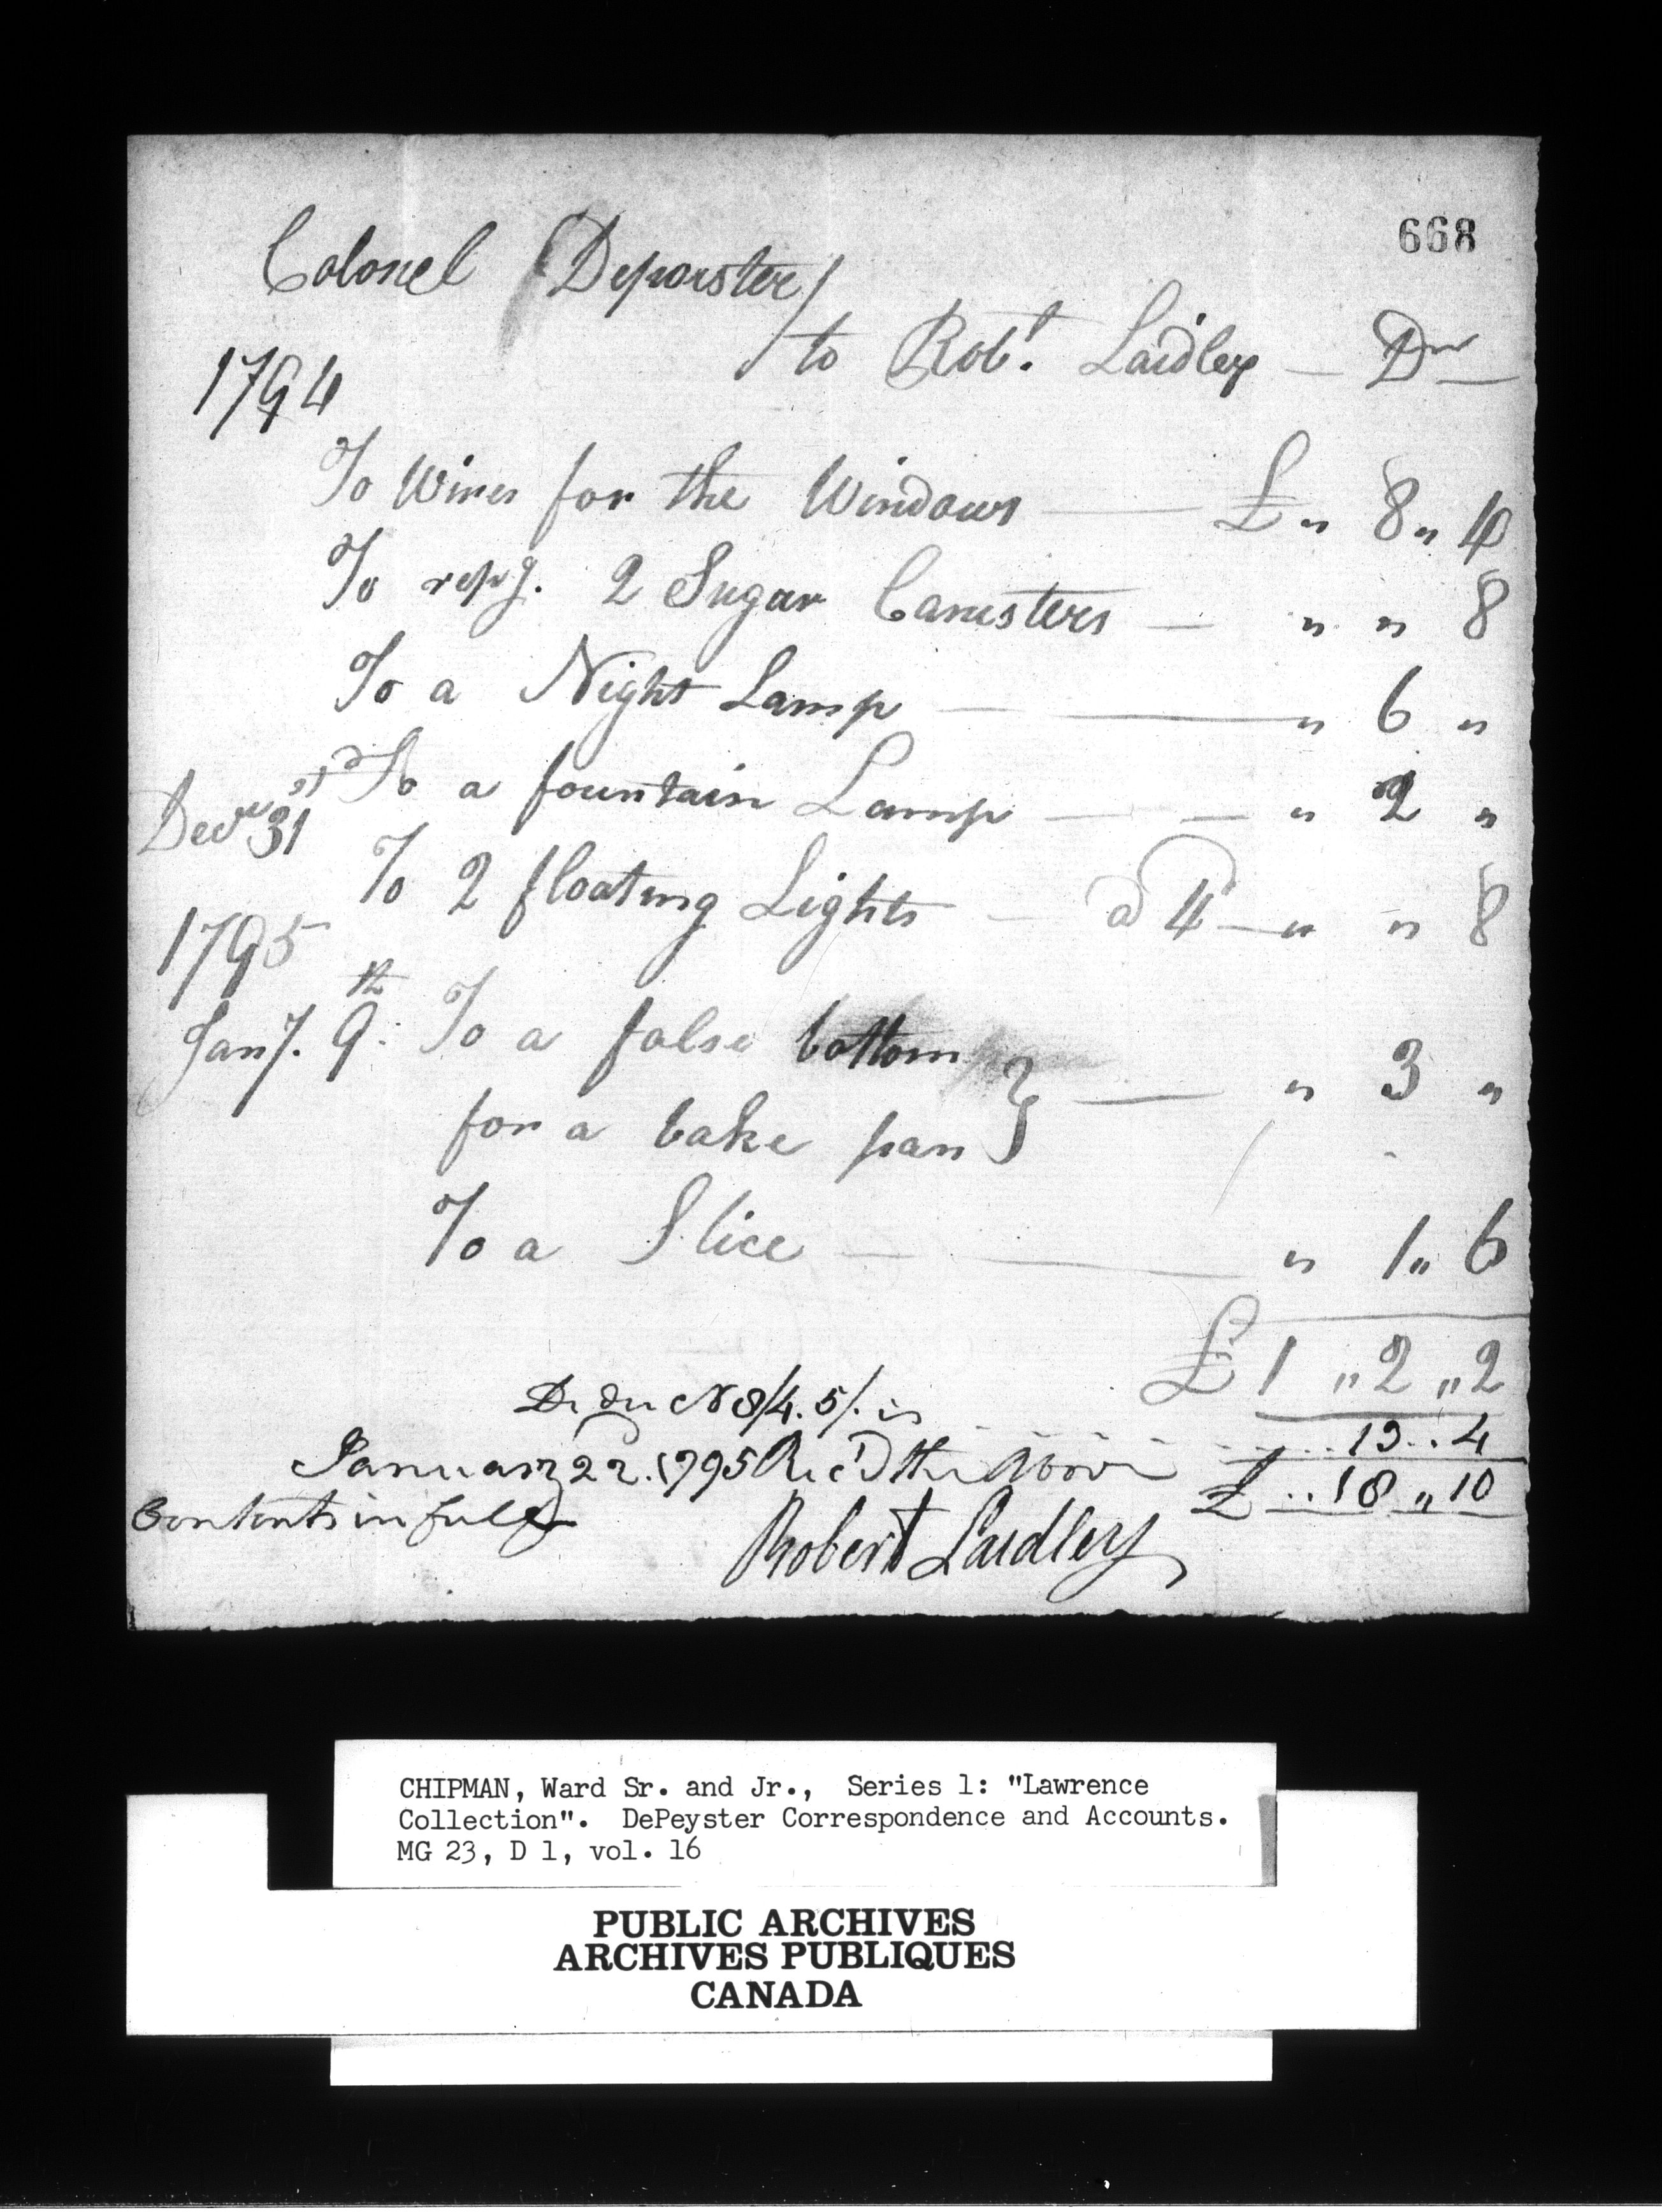 668
Colonel Depoister
to Robt. Laidley — Dr
1794
To Wires for the Windows — £ " 8 " 4
To repg. 2 Sugar Canisters — " " 8
To a Night Lamp — " 6 "
Decr 31st To a fountain Lamp — " 2 "
To 2 floating Lights — a 4d — " " 8
1795
Jany. 9th To a false bottom } — " 3 "
for a bake pan
To a Slice — " 1 " 6
£ 1 " 2 " 2
8/4. 5/. is ... 3 .. 4
January 22. 1795 Rec'd the Above £ .. 18 " 10
Contents in full
Robert Laidley
CHIPMAN, Ward Sr. and Jr., Series 1: "Lawrence
Collection". DePeyster Correspondence and Accounts.
MG 23, D 1, vol. 16
PUBLIC ARCHIVES
ARCHIVES PUBLIQUES
CANADA